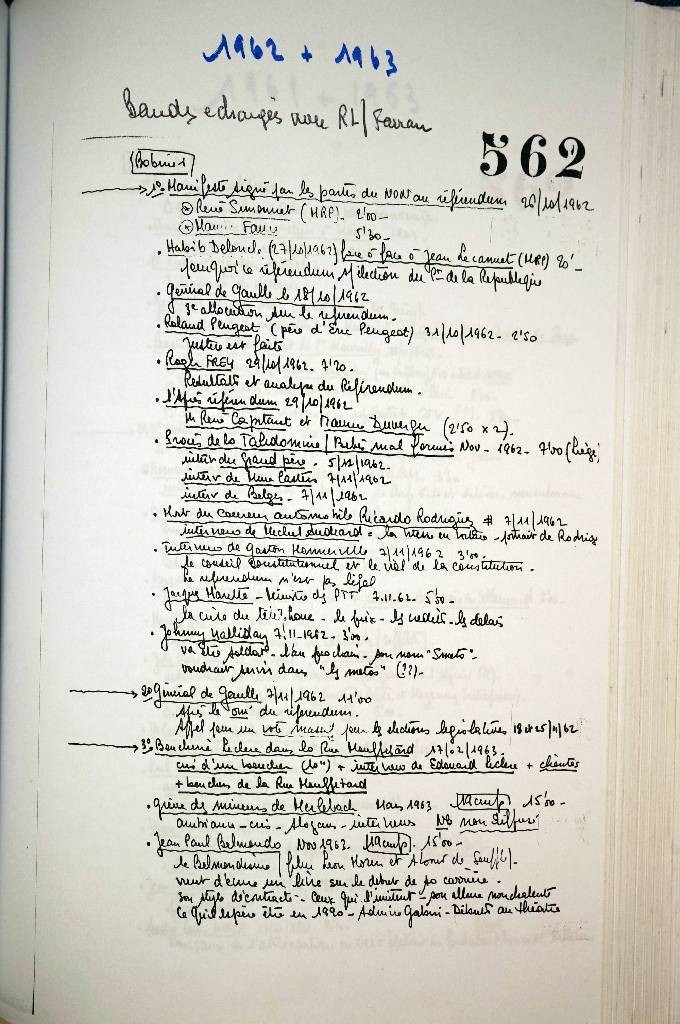 1962 + 1963
Bandes échangées avec RL/Farran
562
Bobine 1
→ 1° Manifeste signé par les partis du NON au référendum 26/10/1962
* René Simonnet (MRP) 2'00 -
* Maurice Faure 5'30 -
• Habib Deloncle (27/10/1962) face à face à Jean Lecanuet (MRP) 20' -
pourquoi ce référendum s/ élection du Pt de la République
• Général de Gaulle le 18/10/1962
3e allocution sur le referendum.
• Roland Peugeot (père d'Eric Peugeot) 31/10/1962 - 2'50
Justice est faite
• Roger FREY 29/10/1962 - 7'20.
Résultats et analyse du Référendum.
• L'Après référendum 29/10/1962
M René Capitant et Maurice Duverger (2'50 x 2).
• Procès de la Talidomine / Bébés mal formés Nov - 1962 - 7'00 (Liège)
interv du Grand père - 5/11/1962 -
interv de Mme Casters 7/11/1962
interv de Belges - 7/11/1962
• Mort du coureur automobile Ricardo Rodriguez # 7/11/1962
interview de = la - portrait de Rodrig
• Interview de Gaston Monnerville 7/11/1962 3'00 -
le conseil Constitutionnel et le viol de la constitution -
Le referendum n'est pas légal
• Jacques Marette - Ministre des PTT 7-11-62 - 5'30 -
la crise du téléphone - le prix - les crédits - les délais
• Johnny Halliday 7/11-1962 - 3'00 -
va être soldat - l'an prochain - son nom "Smets" -
voudrait servir dans "les metos" (??) -
→ 2° Général de Gaulle 7/11/1962 11'00
Après le "oui" du referendum.
Appel pour un vote massif pour les élections legislatives 18 et 25/11/62
→ 3° Boucherie Leclerc dans la Rue Mouffetard 17/02/1963 -
cri d'un boucher (10") + interview de Edouard Leclerc + clientes
+ bouchers de la Rue Mouffetard
• Grève des mineurs de Merlebach Mars 1963 19cmps 15'00 -
ambiance - cris - slogans - interviews NB non diffusé
• Jean Paul Belmondo Nov 1962 19cmps - 15'00 -
le Belmondisme / film Léon Morin et A bout de Souffle -
vient d'écrire un livre sur le debut de sa carrière -
son style décontracté - Ceux qui l'imitent - son allure nonchalente
Ce qu'il espère être en 1990 - Admire Gabin - Débuts au théatre